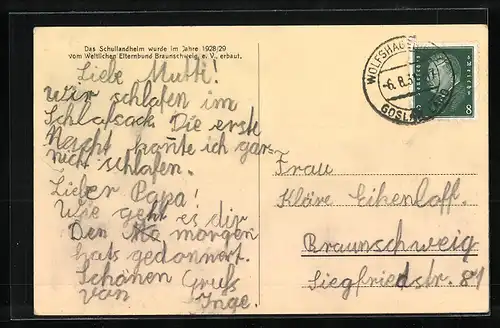 Das Schullandheim wurde im Jahre 1928/29
vom Weltlichen Elternbund Braunschweig, e. V., erbaut.
Liebe Mutti!
Wir schlafen im
Schlafsack. Die erste
Nacht konte ich gar-
nicht schlafen.
Lieber Papa!
Wie geht es dir
Den morgen
hats gedonnert.
Schönen Gruß
von Inge.
WOLFSHAG
-6.8.3
GOSL
8
Frau
Kläre Eikenloff.
Braunschweig
Siegfriedstr. 81